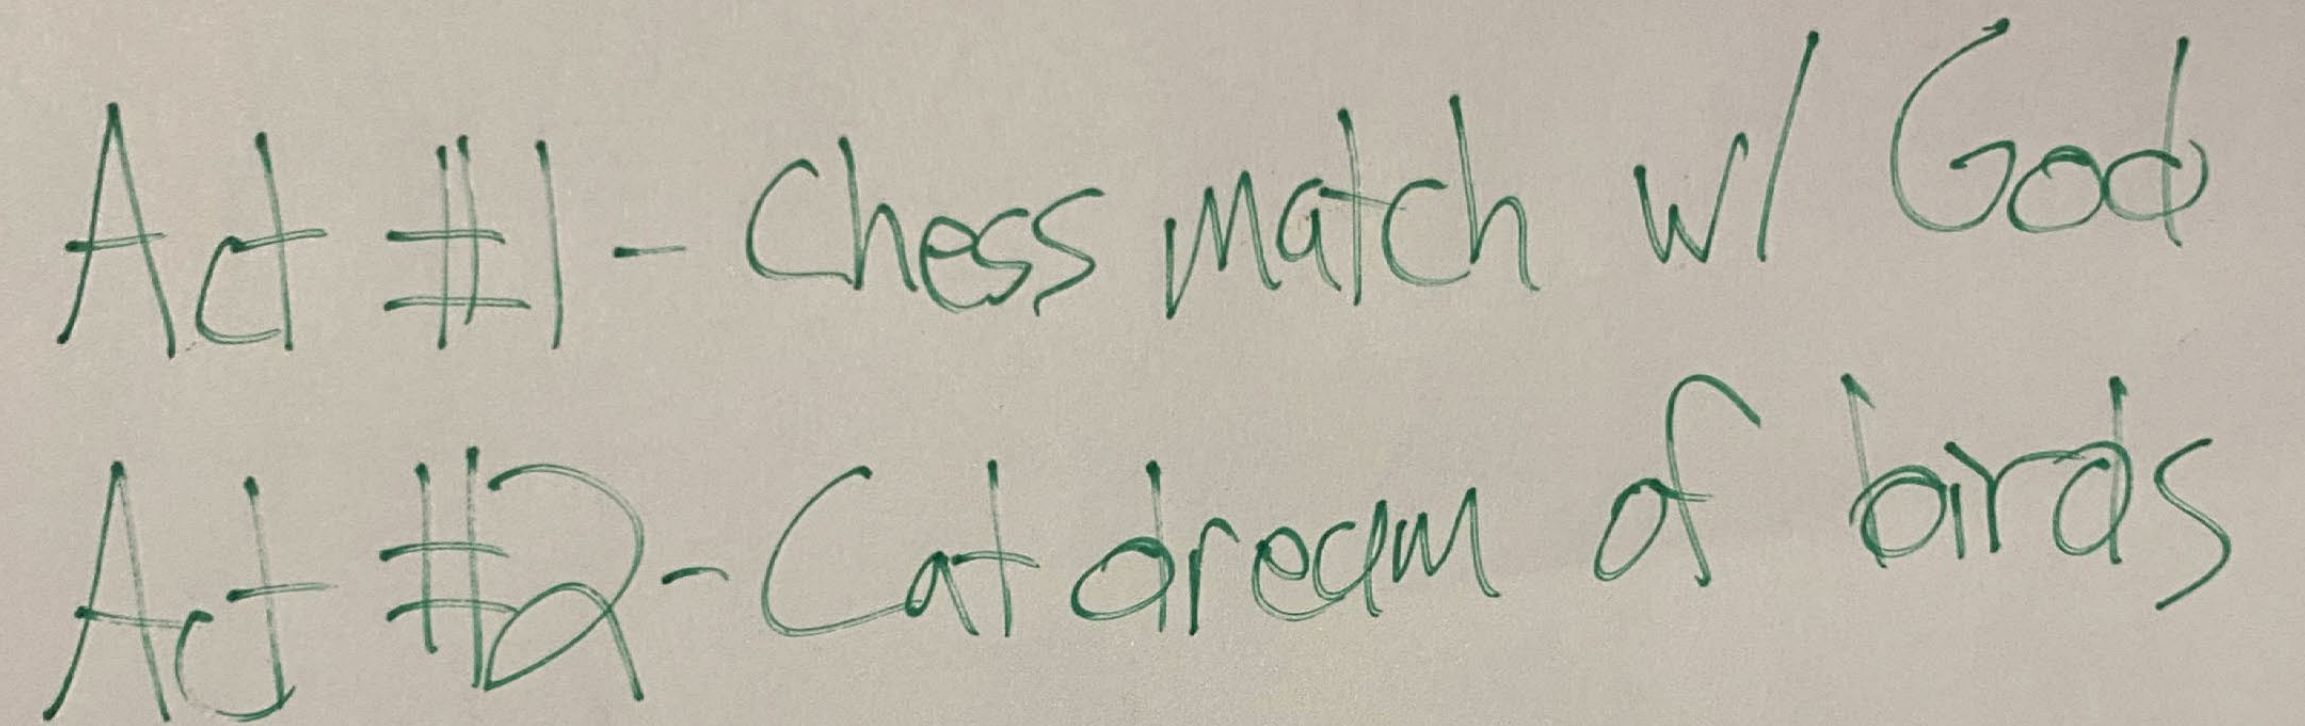 Act #1 - Chess Match w/ God
Act #2 - Cat dream of birds